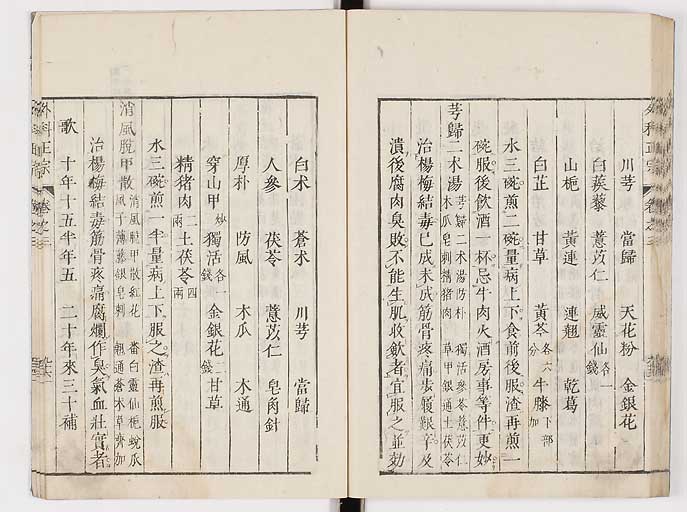 外科正宗
卷之三
川芎 當歸 天花粉 金銀花
白蒺藜 薏苡仁 威靈仙各一錢
山梔 黃連 連翹 乾葛
白芷 甘草 黃芩各六分 牛膝下部加
水三碗煎二碗量病上下食前後服渣再煎一
碗服後飲酒一杯忌牛肉火酒房事等件更妙
芎歸二朮湯 芎歸二朮湯防朴 獨活參苓薏苡仁
木瓜皂刺精猪肉 草甲銀通土茯苓
治楊梅結毒已成未成筋骨疼痛步履艱辛及
潰後腐肉臭敗不能生肌收斂者宜服之並効
白朮 蒼朮 川芎 當歸
人參 茯苓 薏苡仁 皂角針
厚朴 防風 木瓜 木通
穿山甲炒 獨活各一錢 金銀花二錢 甘草
精猪肉二兩 土茯苓四兩
水三碗煎一半量病上下服之渣再煎服
消風脫甲散 消風脫甲散紅花 番白靈仙梔蛻瓜
風子薄藤銀皂刺 翹通蒼朮草齊加
治楊梅結毒筋骨疼痛腐爛作臭氣血壯實者
歌 十年十五半年五 二十年來三十補
外科正宗
卷之三